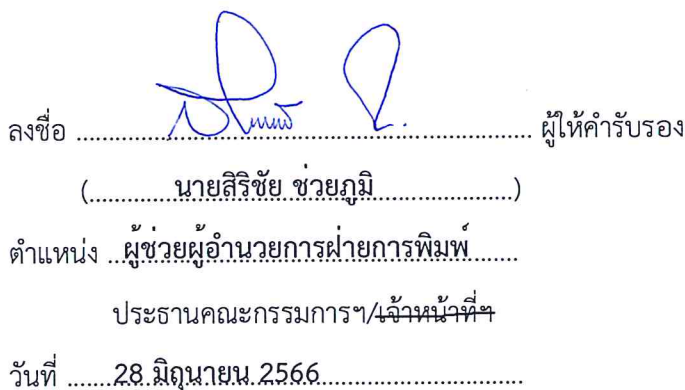 ลงชื่อ ........................................................ ผู้ให้คำรับรอง
(.............นายสิริชัย ช่วยภูมิ.....................)
ตำแหน่ง ..ผู้ช่วยผู้อำนวยการฝ่ายการพิมพ์.......
ประธานคณะกรรมการฯ/เจ้าหน้าที่ฯ
วันที่ .......28 มิถุนายน 2566................................